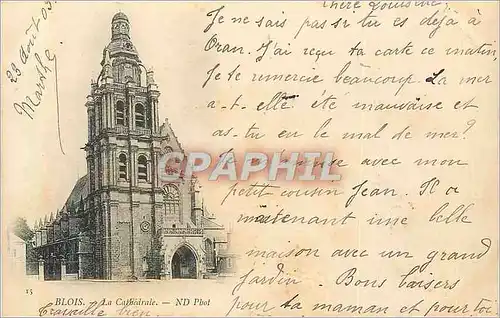 chère Louisine,
Je ne sais pas si tu es déjà à
Oran. J'ai reçu ta carte ce matin,
Je te remercie beaucoup. La mer
a-t-elle été mauvaise et
as-tu eu le mal de mer?
Je m'amuse avec mon
petit cousin Jean. Il a
maintenant une belle
maison avec un grand
jardin. Bons baisers
pour ta maman et pour toi
Travaille bien.
23 Août 03.
Marthe
CPARAMA
CPAPHIL
15
BLOIS. La Cathédrale. — ND Phot